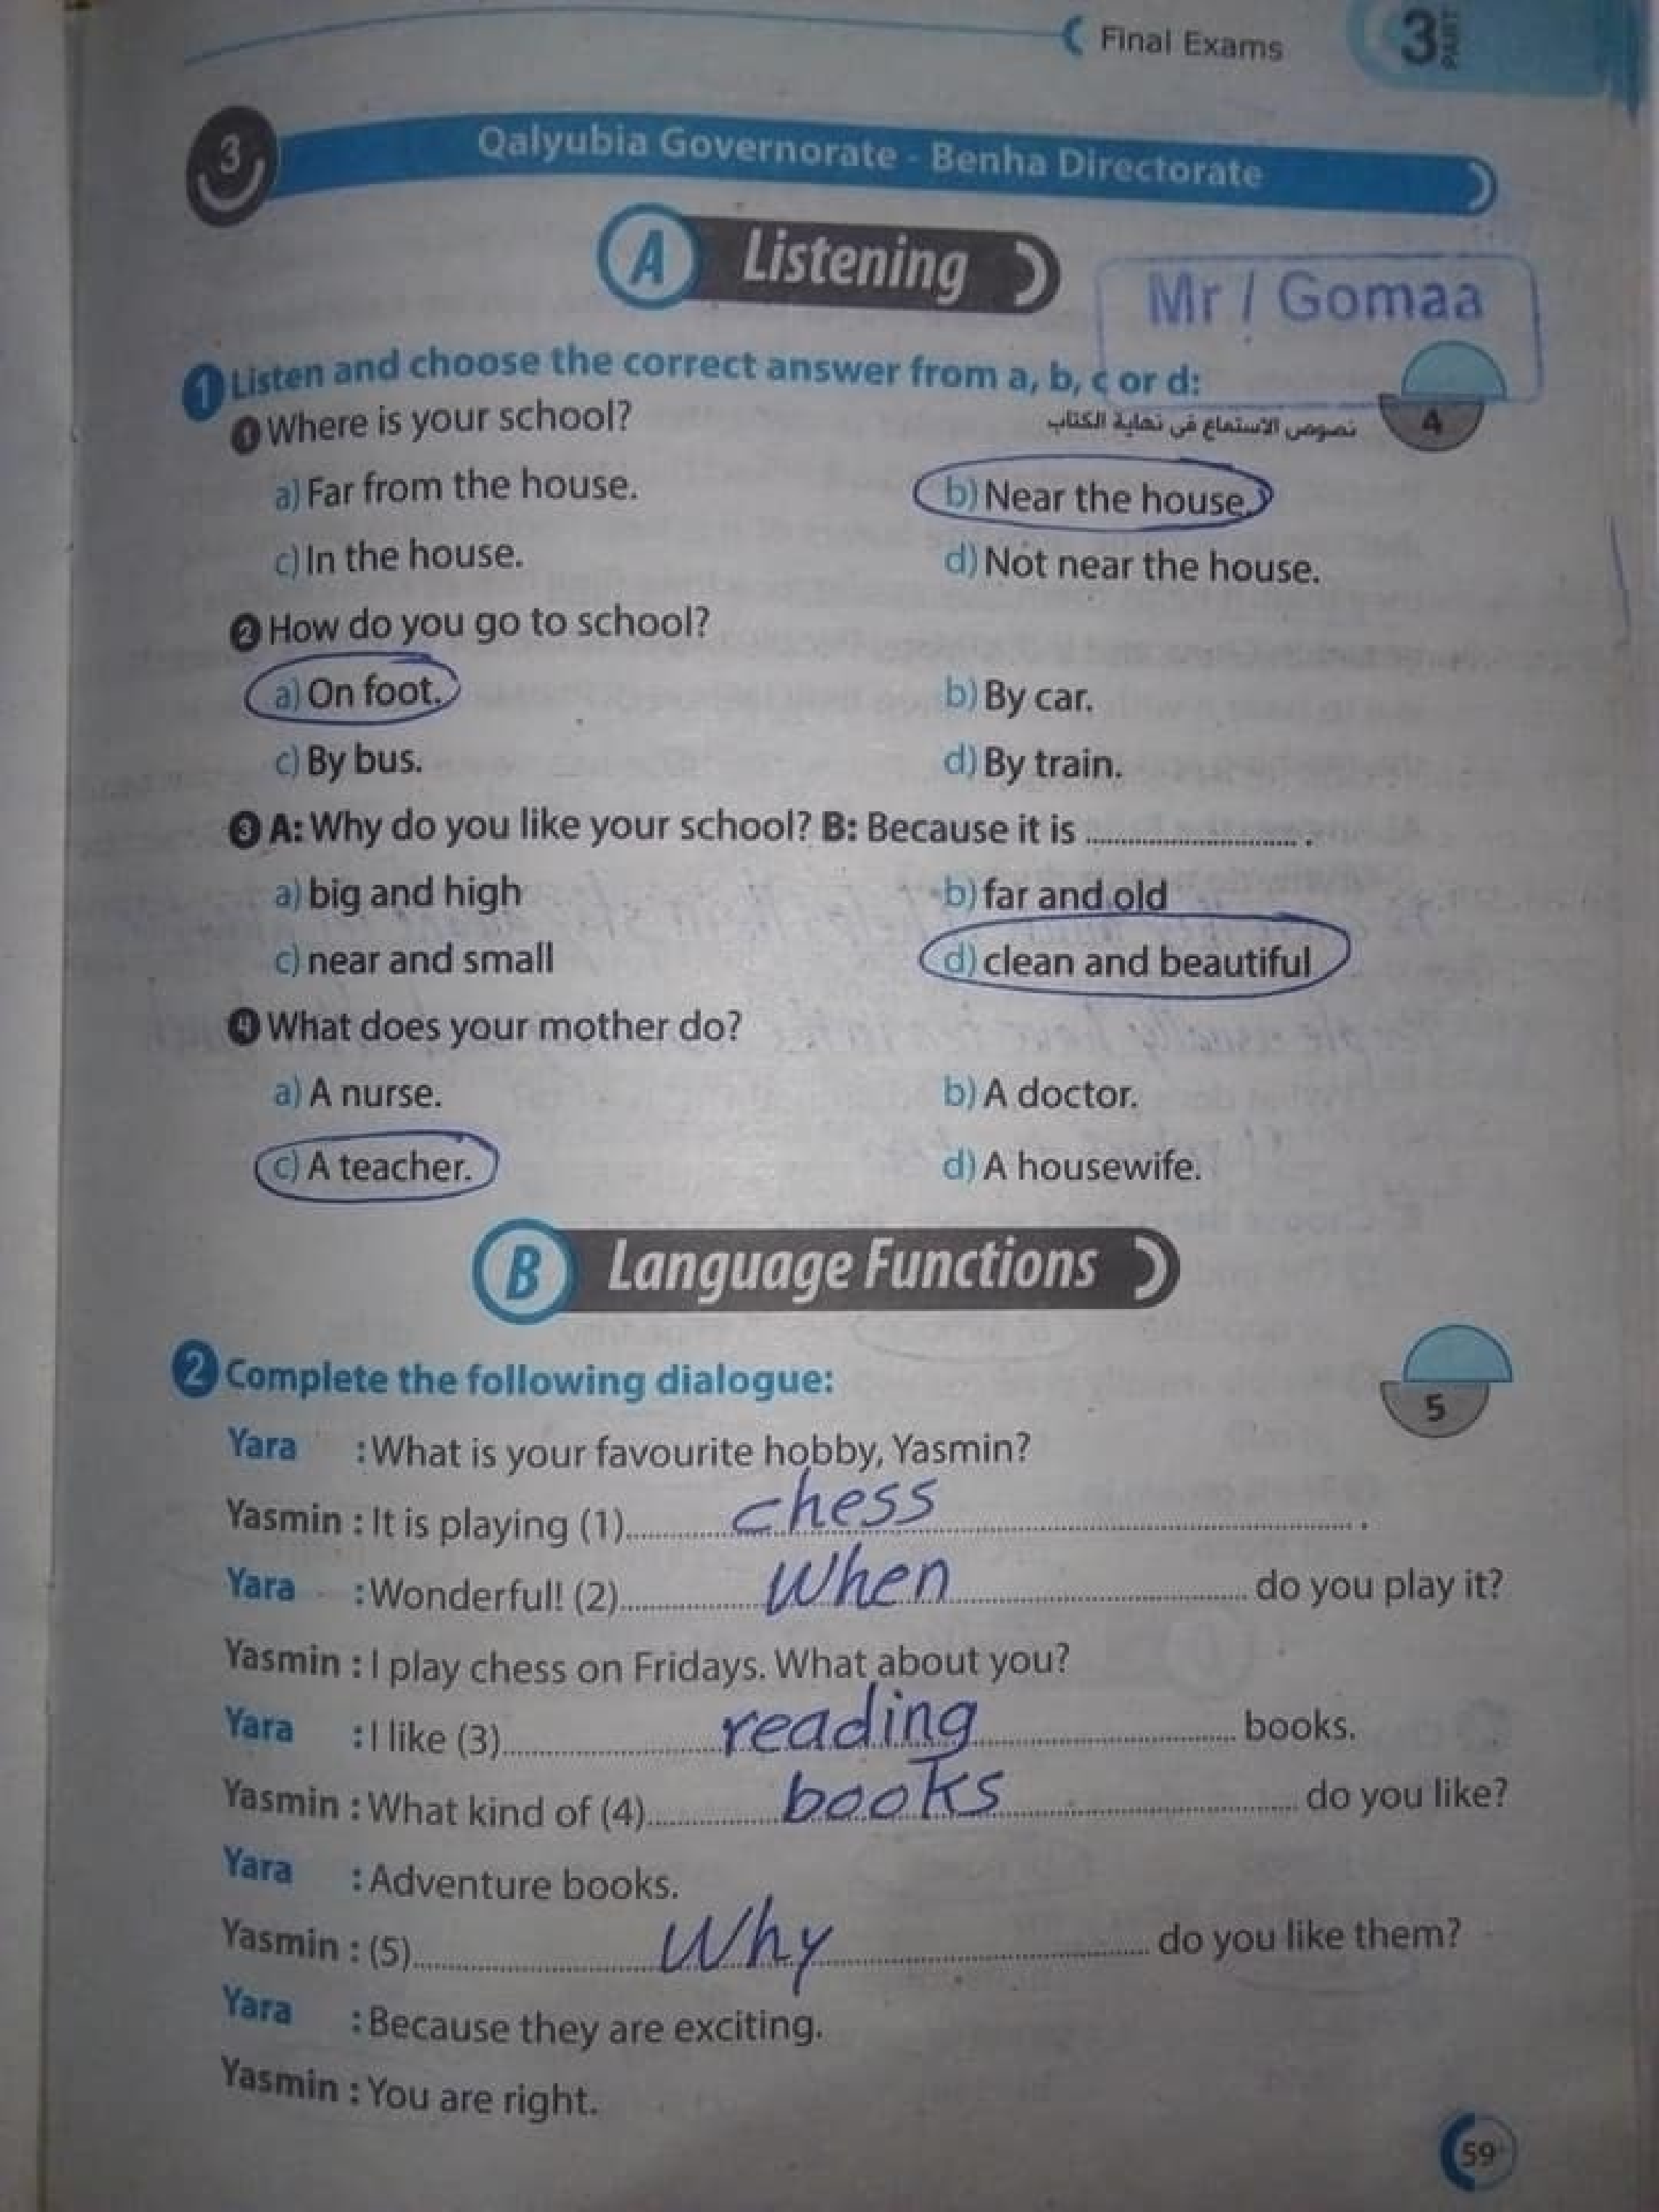 Final Exams
3 PART
3 Qalyubia Governorate - Benha Directorate
A Listening
Mr / Gomaa
1 Listen and choose the correct answer from a, b, c or d:
نصوص الاستماع في نهاية الكتاب
4
1 Where is your school?
a) Far from the house. b) Near the house.
c) In the house. d) Not near the house.
2 How do you go to school?
a) On foot. b) By car.
c) By bus. d) By train.
3 A: Why do you like your school? B: Because it is .............................. .
a) big and high b) far and old
c) near and small d) clean and beautiful
4 What does your mother do?
a) A nurse. b) A doctor.
c) A teacher. d) A housewife.
B Language Functions
2 Complete the following dialogue:
5
Yara : What is your favourite hobby, Yasmin?
Yasmin : It is playing (1) chess .
Yara : Wonderful! (2) When do you play it?
Yasmin : I play chess on Fridays. What about you?
Yara : I like (3) reading books.
Yasmin : What kind of (4) books do you like?
Yara : Adventure books.
Yasmin : (5) Why do you like them?
Yara : Because they are exciting.
Yasmin : You are right.
59